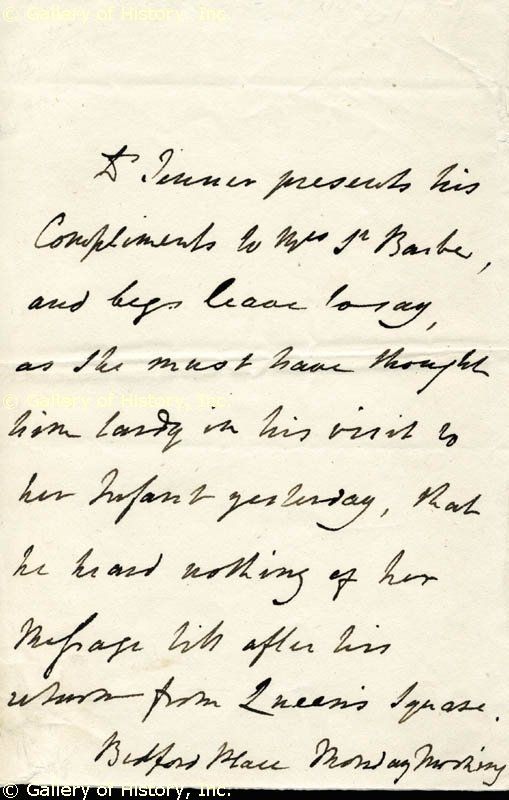 © Gallery of History, Inc.
Dr Jenner presents his
Compliments to Mrs St Barbe,
and begs leave to say,
as she must have thought
© Gallery of History, Inc.
him tardy in his visit to
her Infant yesterday, that
he heard nothing of her
Message till after his
return from Queen's Square.
Bedford Place Monday Morning
© Gallery of History, Inc.